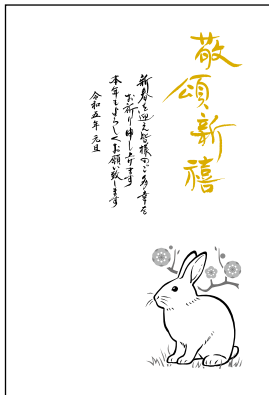 敬頌新禧
新春を迎え皆様のご多幸を
お祈り申し上げます
本年もよろしくお願い致します
令和五年 元旦